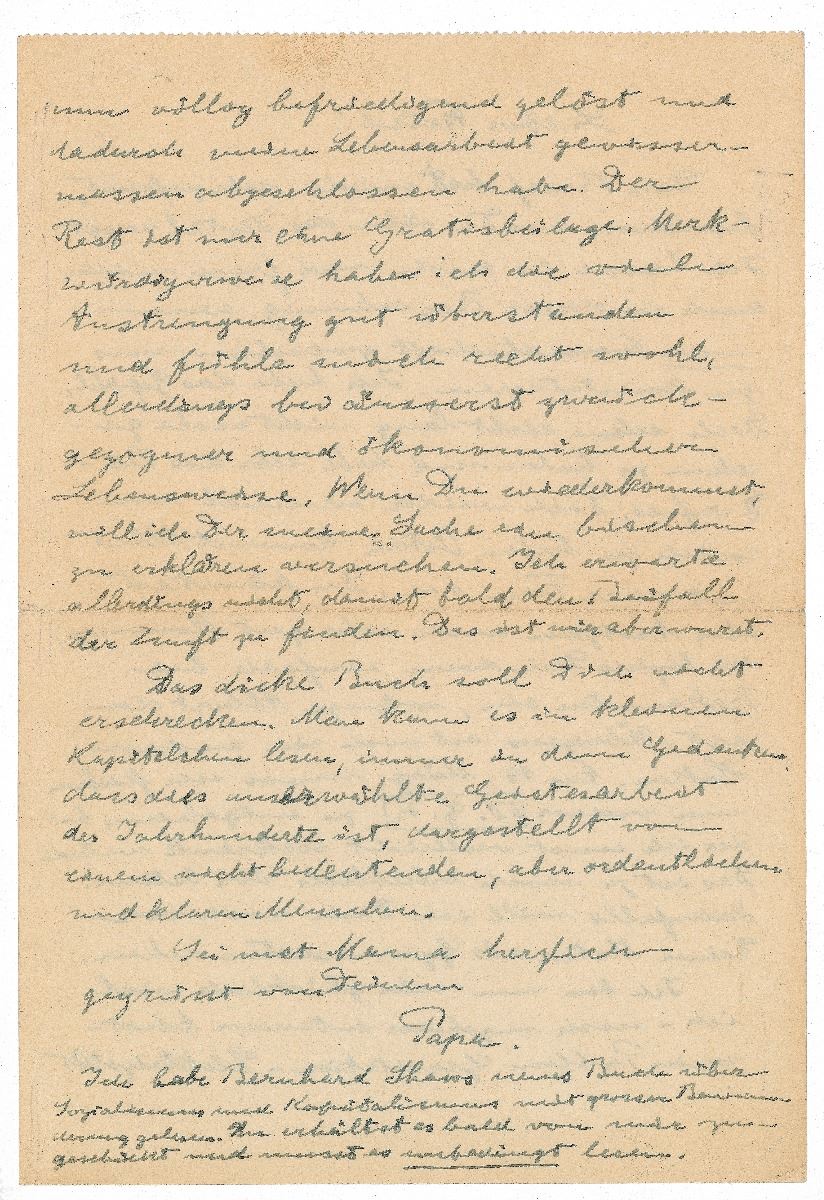 nun völlig befriedigend gelöst und
dadurch meine Lebensarbeit gewisser-
massen abgeschlossen habe. Der
Rest ist nur eine Gratisbeilage. Merk-
würdigerweise habe ich die viele
Anstrengung gut überstanden
und fühle mich recht wohl,
allerdings bei äusserst zurück-
gezogner und ökonomischer
Lebensweise. Wenn Du wiederkommst,
will ich Dir meine Sache ein bischen
zu erklären versuchen. Ich erwarte
allerdings nicht, damit bald den Beifall
der Zunft zu finden. Das ist mir aber wurst.
Das dicke Buch soll Dich nicht
erschrecken. Man kann es in kleinen
Kapitelchen lesen, immer in dem Gedanken,
dass dies auserwählte Geistesarbeit
des Jahrhunderts ist, dargestellt von
einem nicht bedeutenden, aber ordentlichen
und klaren Menschen.
Sei mit Mama herzlich
gegrüsst von Deinem
Papa.
Ich habe Bernhard Shaws neues Buch über
Sozialismus und Kapitalismus mit grosser Bewun-
derung gelesen. Du erhältst es bald von mir zu-
geschickt und musst es unbedingt lesen.